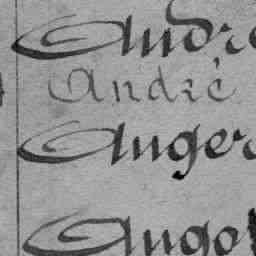 Andre
André
Auger
Auge